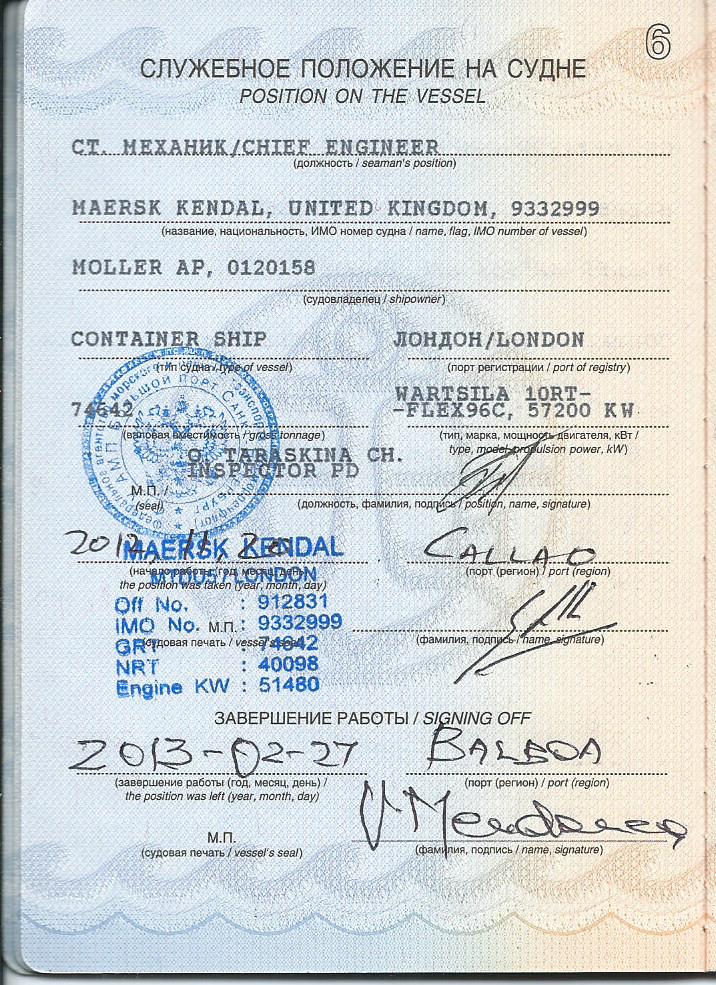 6
СЛУЖЕБНОЕ ПОЛОЖЕНИЕ НА СУДНЕ
POSITION ON THE VESSEL
СТ. МЕХАНИК/CHIEF ENGINEER
(должность / seaman's position)
MAERSK KENDAL, UNITED KINGDOM, 9332999
(название, национальность, ИМО номер судна / name, flag, IMO number of vessel)
MOLLER AP, 0120158
(судовладелец / shipowner)
CONTAINER SHIP ЛОНДОН/LONDON
(тип судна / type of vessel) (порт регистрации / port of registry)
WARTSILA 10RT-
74642 -FLEX96C, 57200 KW
(валовая вместимость / gross tonnage) (тип, марка, мощность двигателя, кВт /
type, model propulsion power, kW)
O. TARASKINA CH.
INSPECTOR PD
М.П. / (должность, фамилия, подпись / position, name, signature)
(seal)
2012, 11, 20 CALLAO
MAERSK KENDAL
(начало работы, год, месяц, день) (порт (регион) / port (region)
/LONDON
the position was taken (year, month, day)
Off No. : 912831
IMO No. : 9332999
М.П.
(судовая печать / vessel's seal) (фамилия, подпись / name, signature)
GRT : 74642
NRT : 40098
Engine KW : 51480
ЗАВЕРШЕНИЕ РАБОТЫ / SIGNING OFF
2013-02-27 BALBOA
(завершение работы (год, месяц, день) / (порт (регион) / port (region)
the position was left (year, month, day)
М.П.
(судовая печать / vessel's seal) (фамилия, подпись / name, signature)